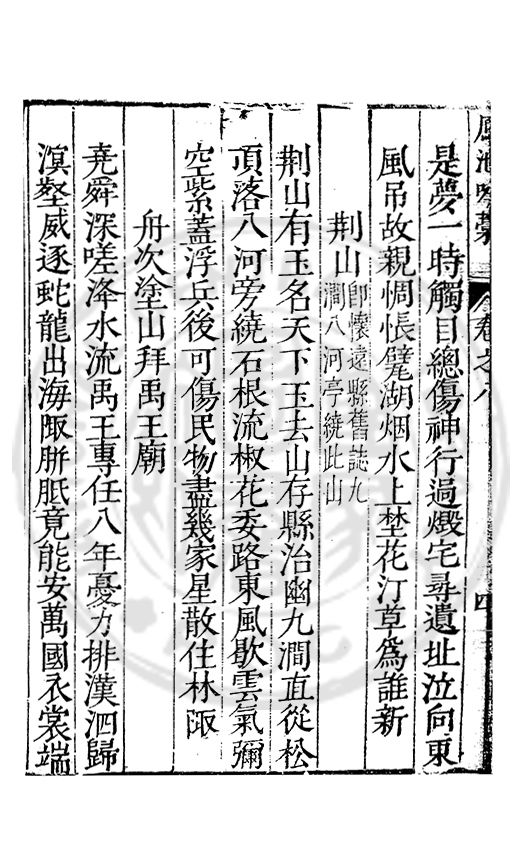 是夢一時觸目總傷神行過燬宅尋遺址泣向東
風吊故親惆悵甓湖烟水上埜花汀草爲誰新
荆山即懷遠縣舊誌九
澗八河亭繞此山
荆山有玉名天下玉去山存縣治幽九澗直從松
頂落八河旁繞石根流椒花委路東風歇雲氣彌
空紫蓋浮兵後可傷民物盡幾家星散住林陬
舟次塗山拜禹王廟
堯舜深嗟洚水流禹王專任八年憂力排漢泗歸
溟壑威逐蛇龍出海陬胼胝竟能安萬國衣裳端
卷之八